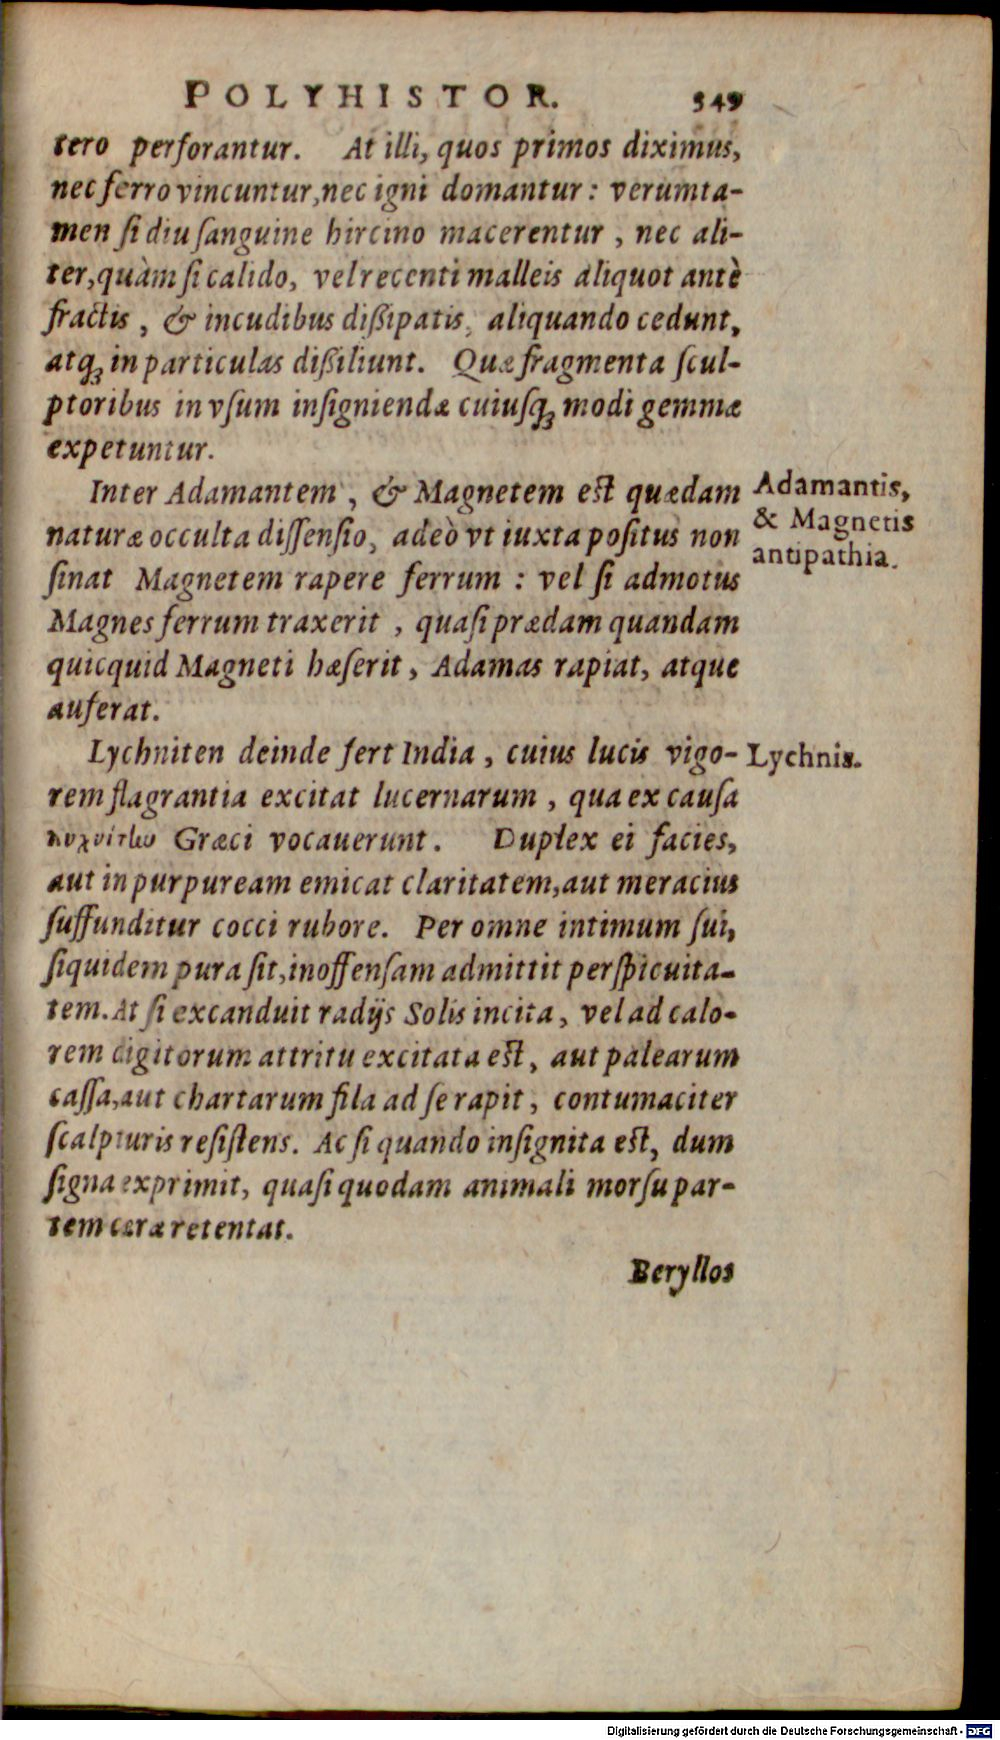 POLYHISTOR. 549
tero perforantur. At illi, quos primos diximus,
nec ferro vincuntur, nec igni domantur: verumta-
men si diu sanguine hircino macerentur, nec ali-
ter, quàm si calido, vel recenti malleis aliquot antè
fractis, & incudibus dißipatis, aliquando cedunt,
atq; in particulas dißiliunt. Quæ fragmenta scul-
ptoribus in vsum insigniendæ cuiusq; modi gemmæ
expetuntur.
Inter Adamantem, & Magnetem est quædam
naturæ occulta dissensio, adeò vt iuxta positus non
sinat Magnetem rapere ferrum: vel si admotus
Magnes ferrum traxerit, quasi prædam quandam
quicquid Magneti hæserit, Adamas rapiat, atque
auferat.
Adamantis,
& Magnetis
antipathia.
Lychniten deinde fert India, cuius lucis vigo-
rem flagrantia excitat lucernarum, qua ex causa
λυχνίτην Græci vocauerunt. Duplex ei facies,
aut in purpuream emicat claritatem, aut meracius
suffunditur cocci rubore. Per omne intimum sui,
siquidem pura sit, inoffensam admittit perspicuita-
tem. At si excanduit radijs Solis incita, vel ad calo-
rem digitorum attritu excitata est, aut palearum
cassa, aut chartarum fila ad se rapit, contumaciter
scalpturis resistens. Ac si quando insignita est, dum
signa exprimit, quasi quodam animali morsu par-
tem ceræ retentat.
Lychnis.
Beryllos
Digitalisierung gefördert durch die Deutsche Forschungsgemeinschaft - DFG